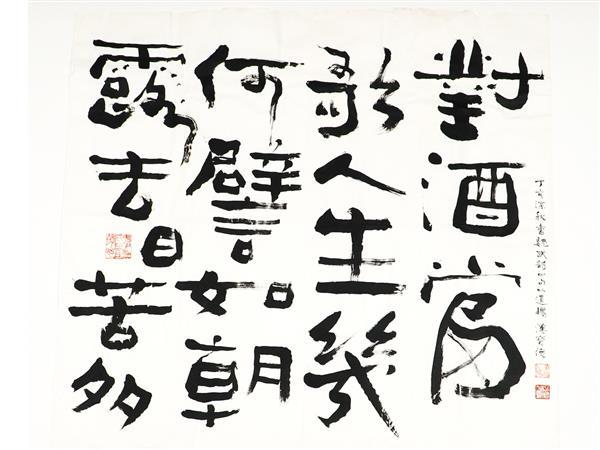 對酒當
歌人生幾
何譬如朝
露去日苦多
丁亥深秋書魏武詩四句以遣懷 漢寶德